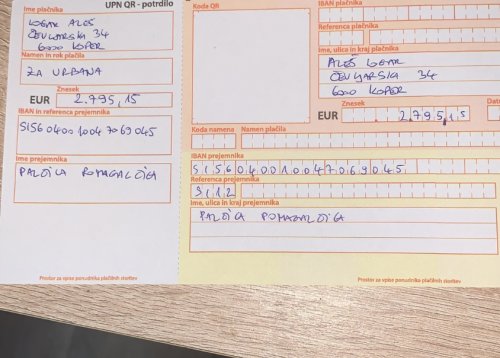 UPN QR - potrdilo
Ime plačnika
LOGAR ALEŠ
ČEVLJARSKA 34
6000 KOPER
Namen in rok plačila
ZA URBANA
Znesek
EUR 2.795,15
IBAN in referenca prejemnika
SI56040010047069045
Ime prejemnika
PALČICA POMAGALČICA
Prostor za vpise ponudnika plačilnih storitev
Koda QR
IBAN plačnika
Referenca plačnika
Ime, ulica in kraj plačnika
ALEŠ LOGAR
ČEVLJARSKA 34
6000 KOPER
Znesek
EUR 2.795,15
Koda namena Namen plačila
IBAN prejemnika
SI56040010047069045
Referenca prejemnika
SI12
Ime, ulica in kraj prejemnika
PALČICA POMAGALČICA
Prostor za vpise ponudnika plačilnih storitev